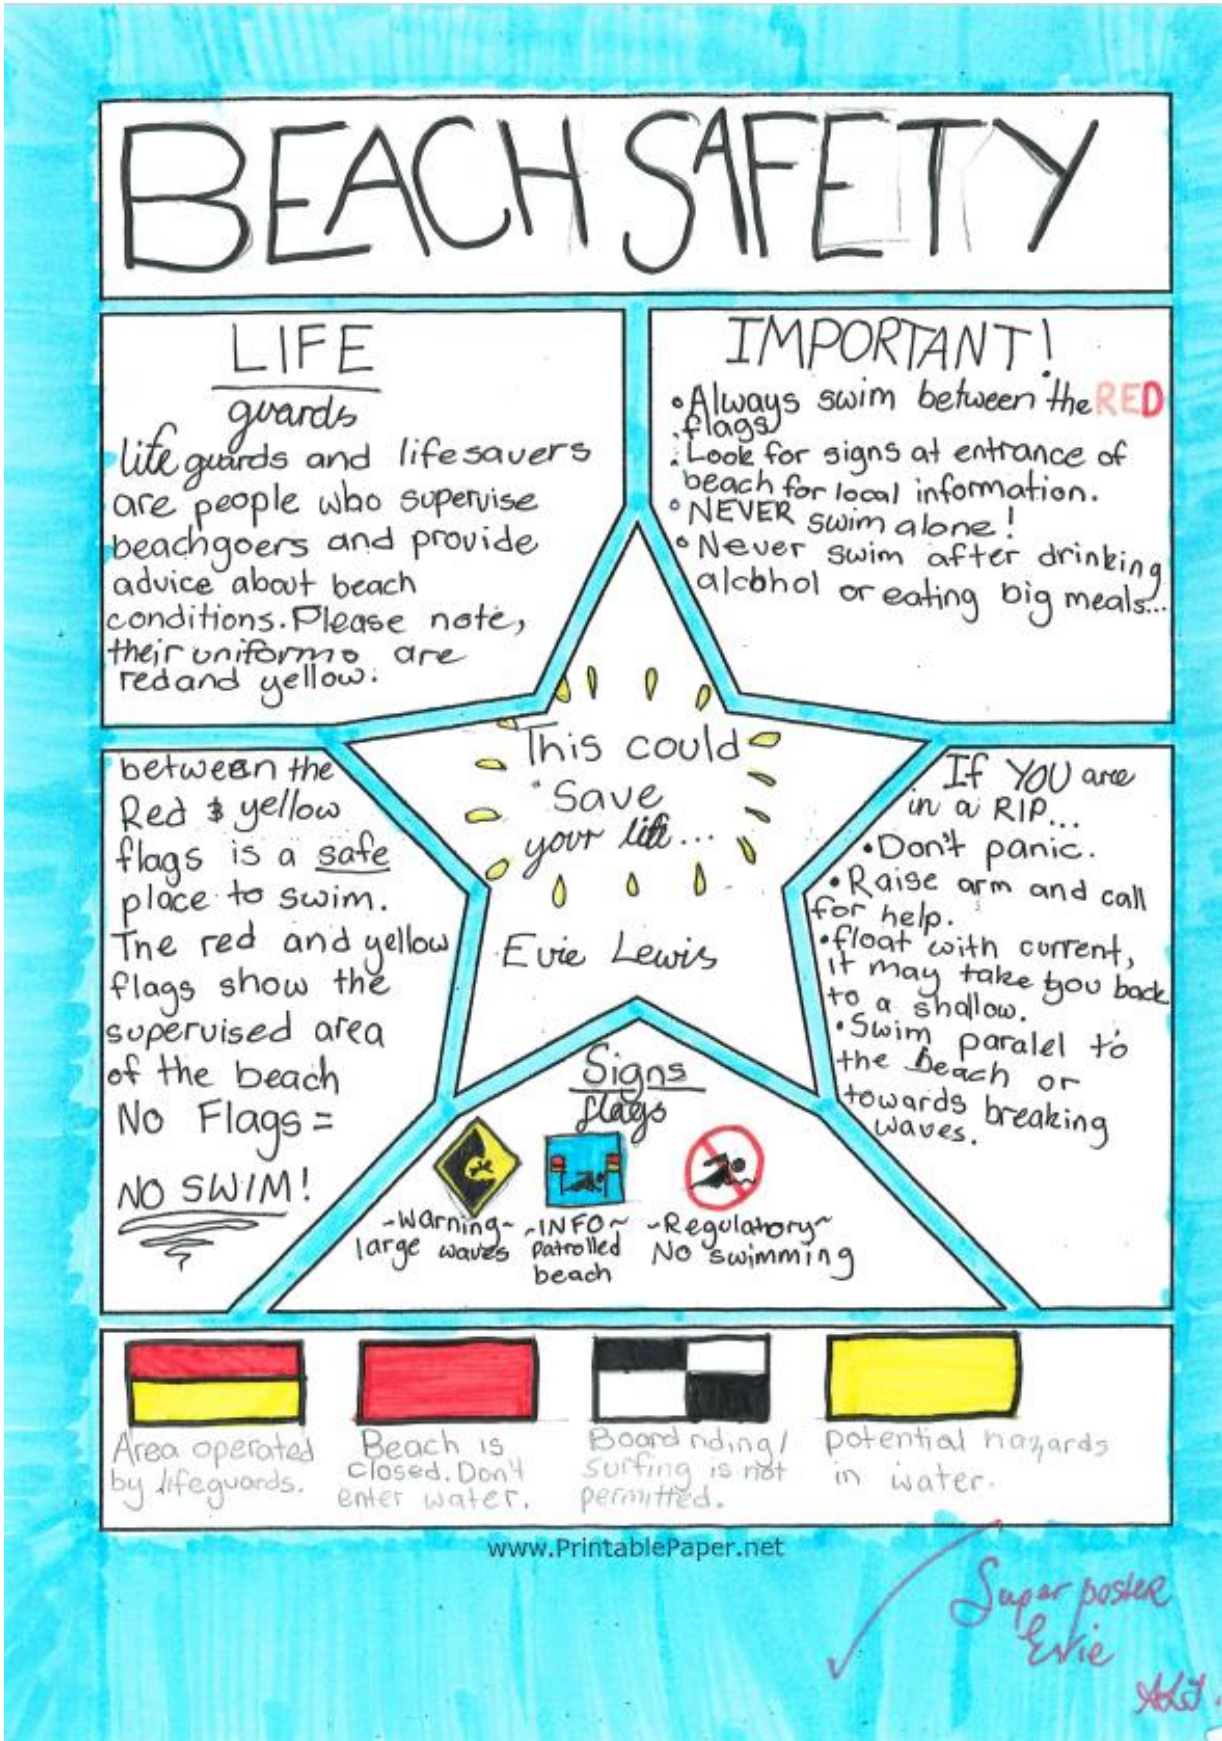 BEACH SAFETY
LIFE
guards
life guards and lifesavers
are people who supervise
beachgoers and provide
advice about beach
conditions. Please note,
their uniforms are
red and yellow.
IMPORTANT!
• Always swim between the RED
flags
• Look for signs at entrance of
beach for local information.
• NEVER swim alone!
• Never swim after drinking
alcohol or eating big meals...
This could
Save
your life...
Evie Lewis
between the
Red & yellow
flags is a safe
place to swim.
The red and yellow
flags show the
supervised area
of the beach
No Flags =
NO SWIM!
If YOU are
in a RIP...
• Don't panic.
• Raise arm and call
for help.
• float with current,
it may take you back
to a shallow.
• Swim paralel to
the Beach or
towards breaking
waves.
Signs
flags
~Warning~
large waves
~INFO~
Patrolled
beach
~Regulatory~
No swimming
Area operated
by lifeguards.
Beach is
closed. Don't
enter water.
Board riding/
surfing is not
permitted.
potential hazards
in water.
www.PrintablePaper.net
Super poster
Evie